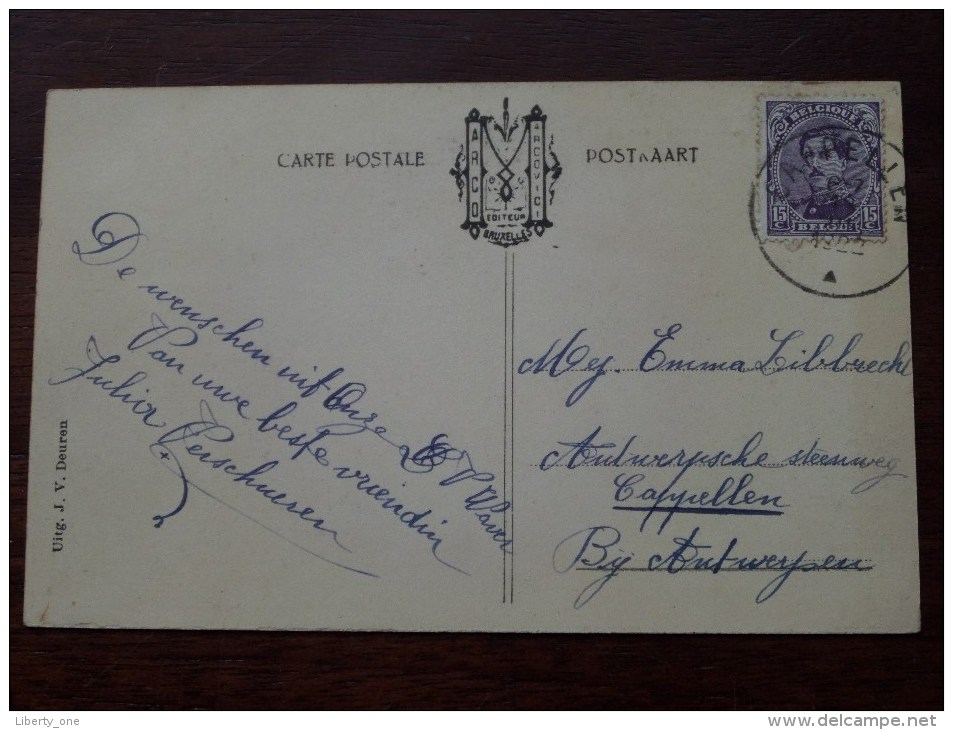 CARTE POSTALE
ARCO
MARCOVICI
EDITEUR
BRUXELLES
POSTKAART
BELGIQUE
15c
15c
BELGIË
De wenschen uit Onze L V Waver
Van uwe beste vriendin
Julia Verschueren
Mej. Emma Libbrecht
Antwerpsche steenweg
Cappellen
By Antwerpen
Uitg. J. V. Deuren
Liberty_one
www.delcampe.net